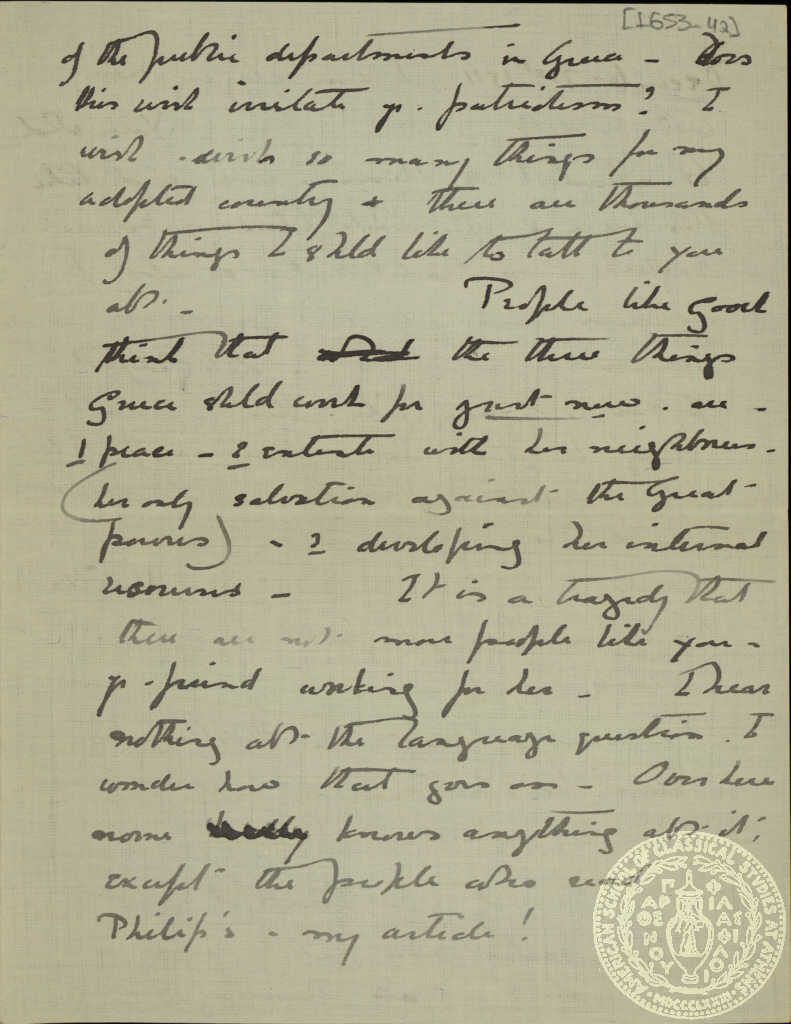 [1653-42]
of the public departments in Greece - Does
this wish irritate yr. patriotism? I
wish so many things for my
adopted country & there are thousands
of things I shld like to talk to you
abt. - People like Gooch
think that the three things
Greece shld work for just now. are -
1 peace - 2 entente with her neighbours -
(her only salvation against the Great
powers) - 3 developing her internal
resources - It is a tragedy that
there are not more people like you -
yr. friend working for her - I hear
nothing abt. the language question. I
wonder how that goes on - Over here
none knows anything abt. it,
except the people who read
Philip's - my article!
AMERICAN SCHOOL OF CLASSICAL STUDIES AT ATHENS
ΠΑΡΘΕΝΟΥ ΦΙΛΑΣ ΦΙΟΤ
MDCCCLXXXI